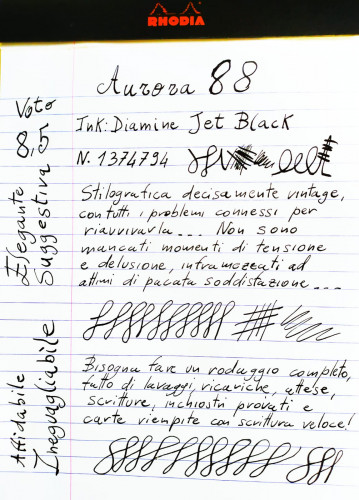 RHODIA
Aurora 88
Ink: Diamine Jet Black
N. 1374794
Stilografica decisamente vintage,
con tutti i problemi connessi per
riavvivarla... Non sono
mancati momenti di tensione
e delusione, inframezzati ad
attimi di pacata soddistazione...
Bisogna fare un rodaggio completo,
fatto di lavaggi, ricariche, attese,
scritture, inchiostri provati e
carte riempite con scrittura veloce!
Voto
8,5
Elegante
Suggestiva
Affidabile
Ineguagliabile